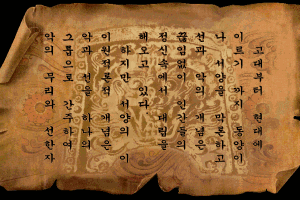 고대부터 현대에
이르기까지 동양이
나 서양을 막론하고
선과 악의 개념은
끊임없이 인간들의
정신속에서 대립을
해오고 있다
하지만 서양의 이
이원론적 개념은
악과 선을 하나의
그룹으로 간주하여
악의 무리와 선한자